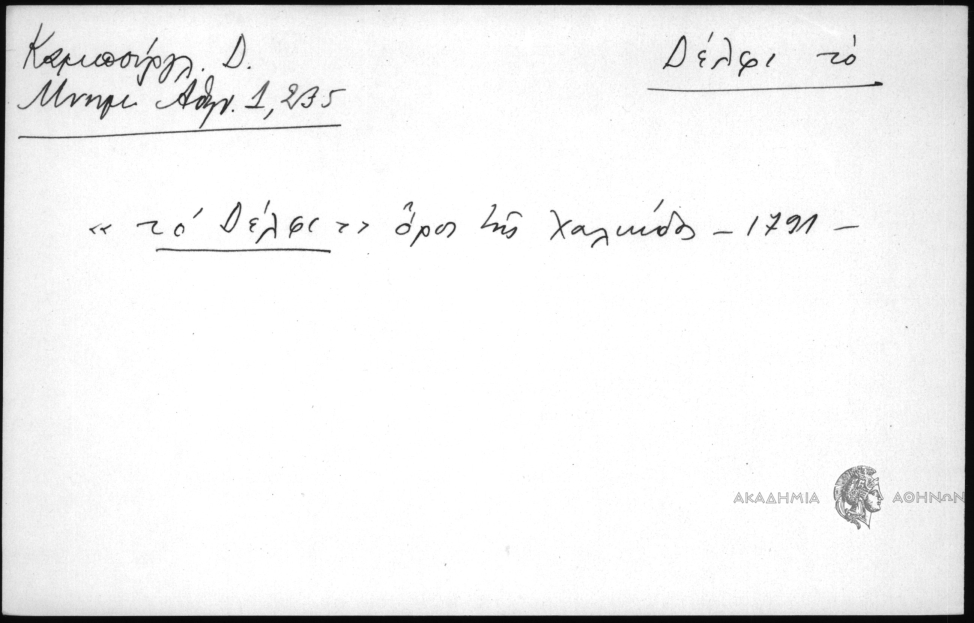 Καμπούργλ. Δ.
Μνημ. Αθην. 1, 235
Δέλφι τό
« τό Δέλφι τ » ὄρος τῆς Χαλκίδος – 1791 –
ΑΚΑΔΗΜΙΑ ΑΘΗΝΩΝ